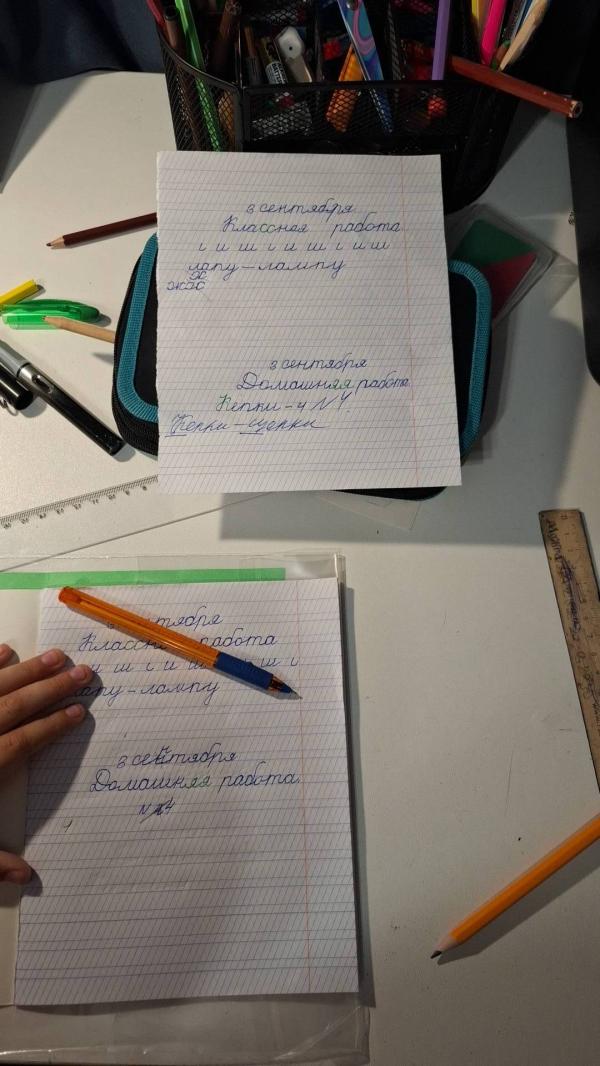 3 сентября
Классная работа
ι и ш ι и ш ι и ш
лапу-лампу
3 сентября
Домашняя работа
Кепки-ч №4.
Кепки-щепки
сентября
Классн работа
и ш ι и ш ш ι
лапу-лампу
3 сентября
Домашняя работа.